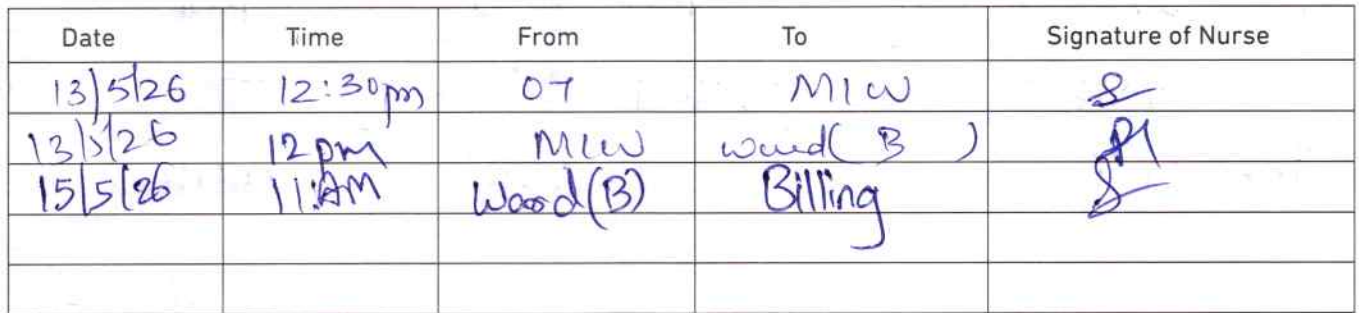 Date Time From To Signature of Nurse
13/5/26 12:30pm OT MIW
13/5/26 12pm MIW ward( B )
15/5/26 11:AM Ward(B) Billing